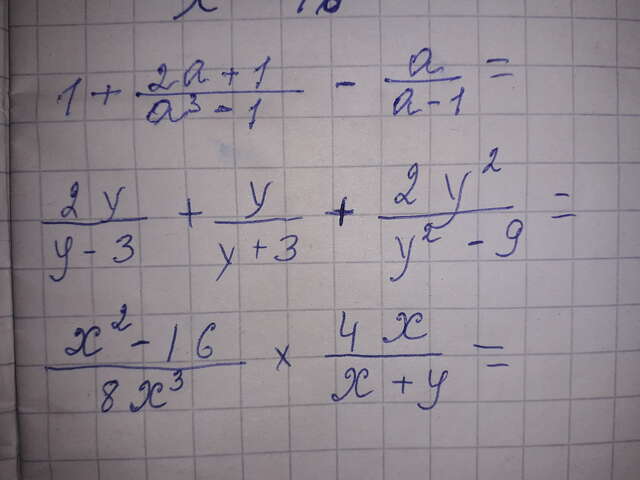 1 + (2a + 1)/(a³ - 1) - a/(a - 1) =
2y/(y - 3) + y/(y + 3) + 2y²/(y² - 9) =
(x² - 16)/(8x³) × 4x/(x + y) =